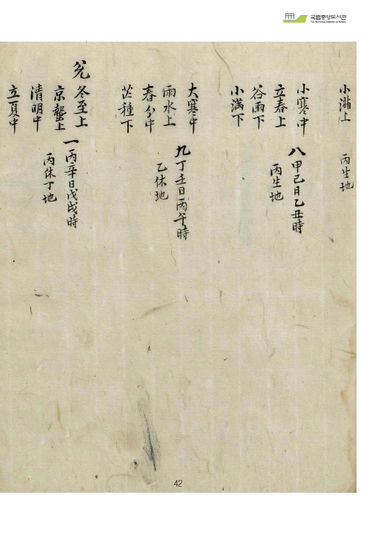 국립중앙도서관
小滿上 丙生地
小寒中 八甲己日乙丑時
立春上 丙生地
谷雨下
小滿下
大寒中 九丁壬日丙午時
雨水上 乙休地
春分中
芒種下
兌
冬至上 一丙辛日戊戌時
京蟄上 丙休丁地
清明中
立夏中
42